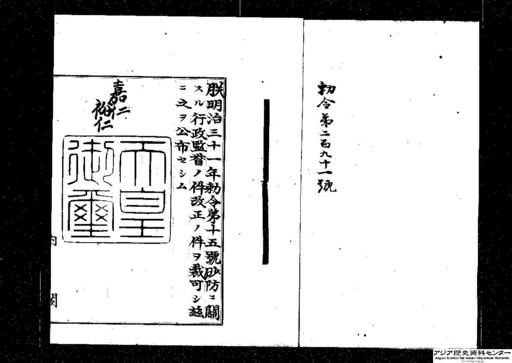 勅令第二百九十一號
朕明治三十一年勅令第十五號砂防ニ關
スル行政監督ノ件改正ノ件ヲ裁可シ茲
ニ之ヲ公布セシム
嘉仁
裕仁
天皇
御璽
内閣
アジア歴史資料センター
Japan Center for Asian Historical Records